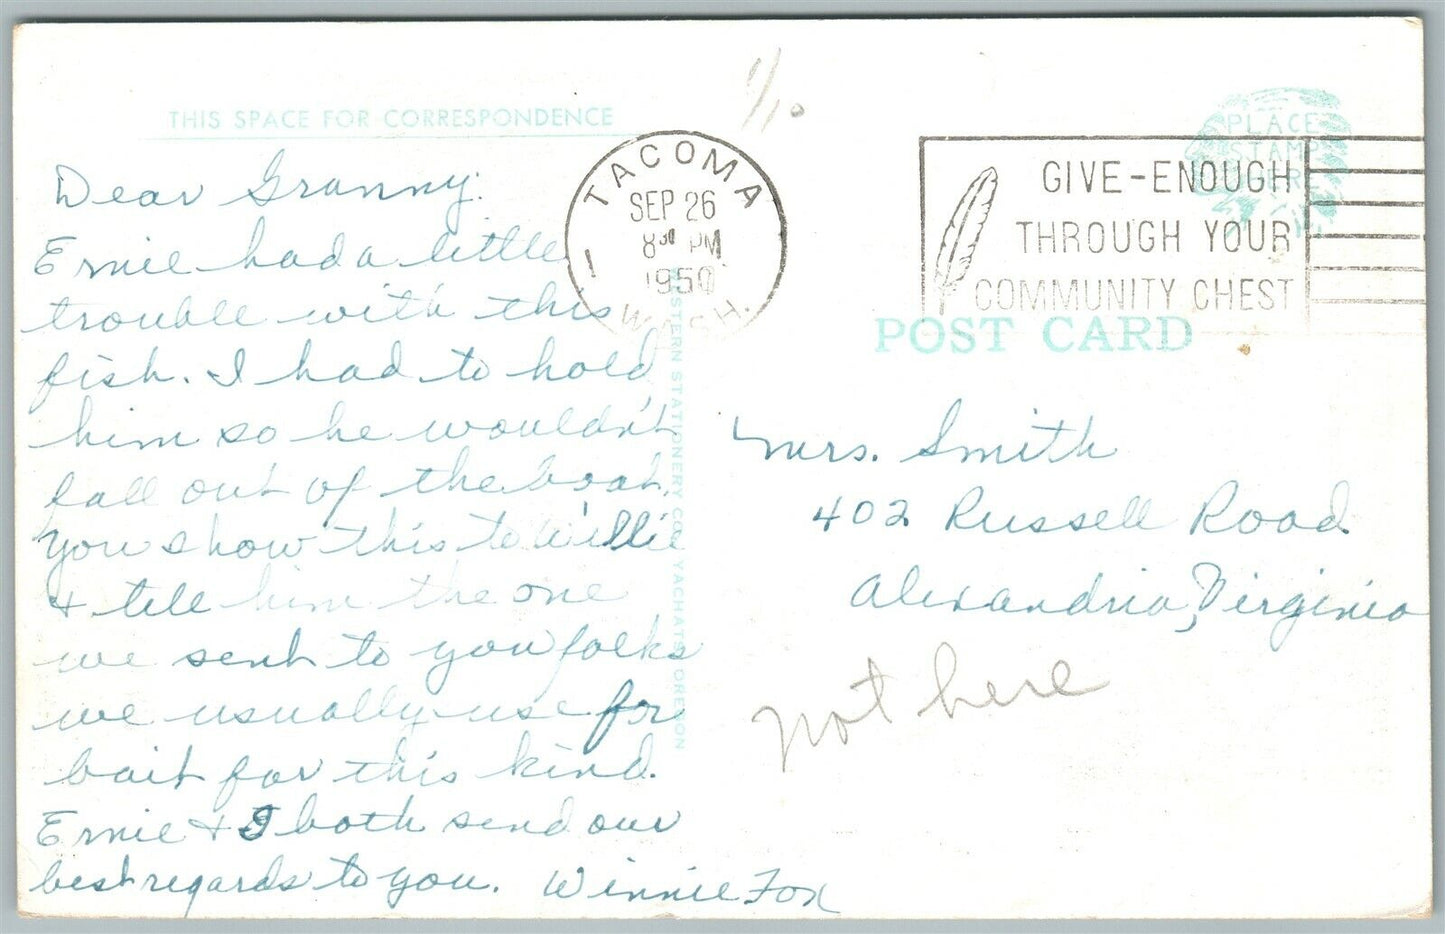 THIS SPACE FOR CORRESPONDENCE
Dear Granny:
Ernie had a little
trouble with this
fish. I had to hold
him so he wouldn't
fall out of the boat.
You show this to Willie
& tell him the one
we sent to you folks
we usually use for
bait for this kind.
Ernie & I both send our
best regards to you. Winnie Fox
1/10
TACOMA
1
SEP 26
8 30 PM
1950
WASH.
GIVE-ENOUGH
THROUGH YOUR
COMMUNITY CHEST
PLACE
STAMP
HERE
WESTERN STATIONERY CO., YACHATS, OREGON
POST CARD
Mrs. Smith
402 Russell Road
Alexandria, Virginia
not here